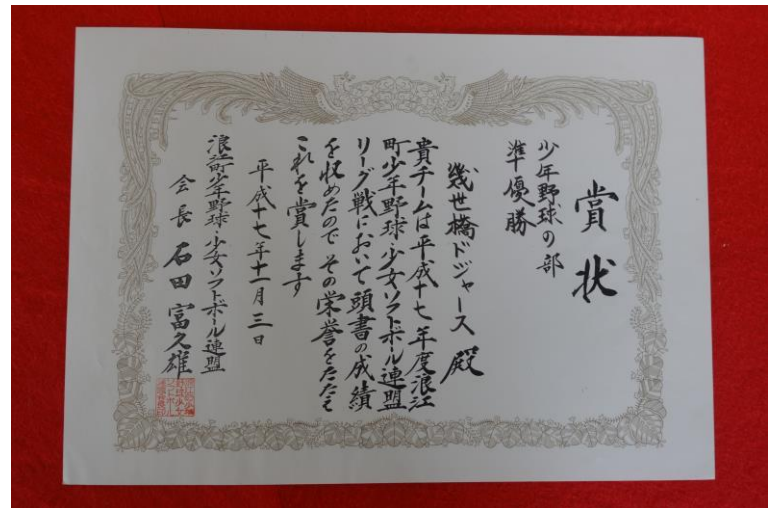 賞状
少年野球の部
準優勝
幾世橋ドジャース殿
貴チームは平成十七年度浪江
町少年野球・少女ソフトボール連盟
リーグ戦において頭書の成績
を収めたのでその栄誉をたたえ
これを賞します
平成十七年十一月三日
浪江町少年野球・少女ソフトボール連盟
会長 石田富久雄